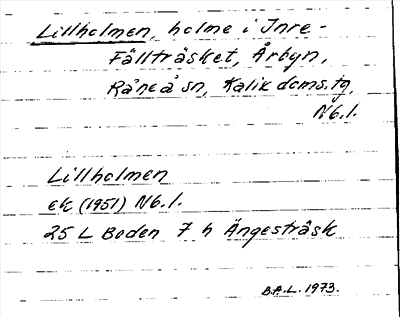 Lillholmen, holme i Inre-
Fällträsket, Årbyn,
Råneå sn, Kalix doms.tg,
Nb.l.
Lillholmen
ek (1951) Nb.l.
25 L Boden 7 h Ängesträsk
B.A.L. 1973.